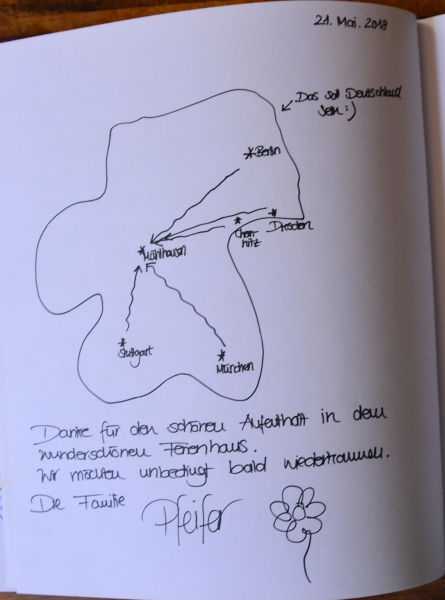 21. Mai. 2018
Das soll Deutschland
sein :)
Berlin
Dresden
Chem-
nitz
Mühlhausen
Stuttgart
München
Danke für den schönen Aufenthalt in dem
wunderschönen Ferienhaus.
Wir möchten unbedingt bald wiederkommen.
Die Familie
Pfeifer